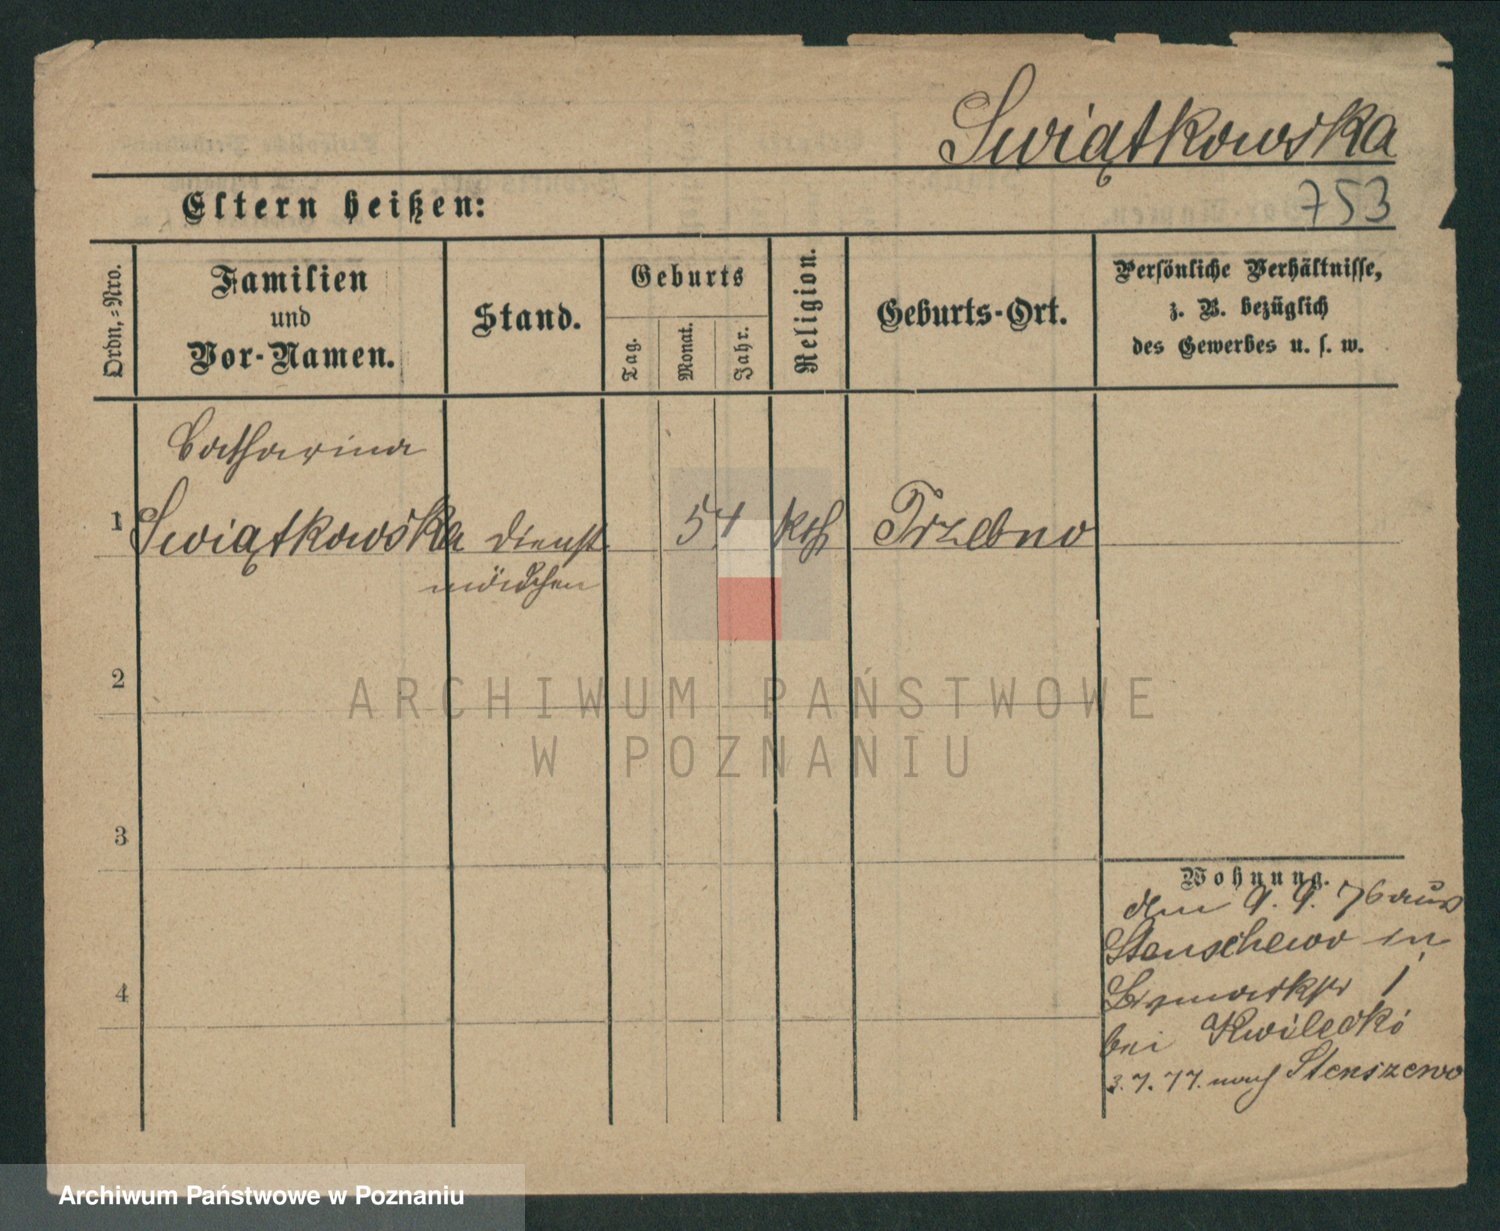 Swiątkowska
753
Eltern heißen:
Ordn.-Nro.
Familien
und
Vor-Namen.
Stand.
Geburts
Tag.
Monat.
Jahr.
Religion.
Geburts-Ort.
Persönliche Verhältnisse,
z. B. bezüglich
des Gewerbes u. s. w.
Catharina
1 Swiątkowska Dienst 54 kth Trzebno
mädchen
2
ARCHIWUM PAŃSTWOWE
W POZNANIU
3
Wohnung.
den 9. 9. 76 aus
Stenschewo in
4
1
bei Kwilecki
3. 7. 77. nach Stenszewo
Archiwum Państwowe w Poznaniu